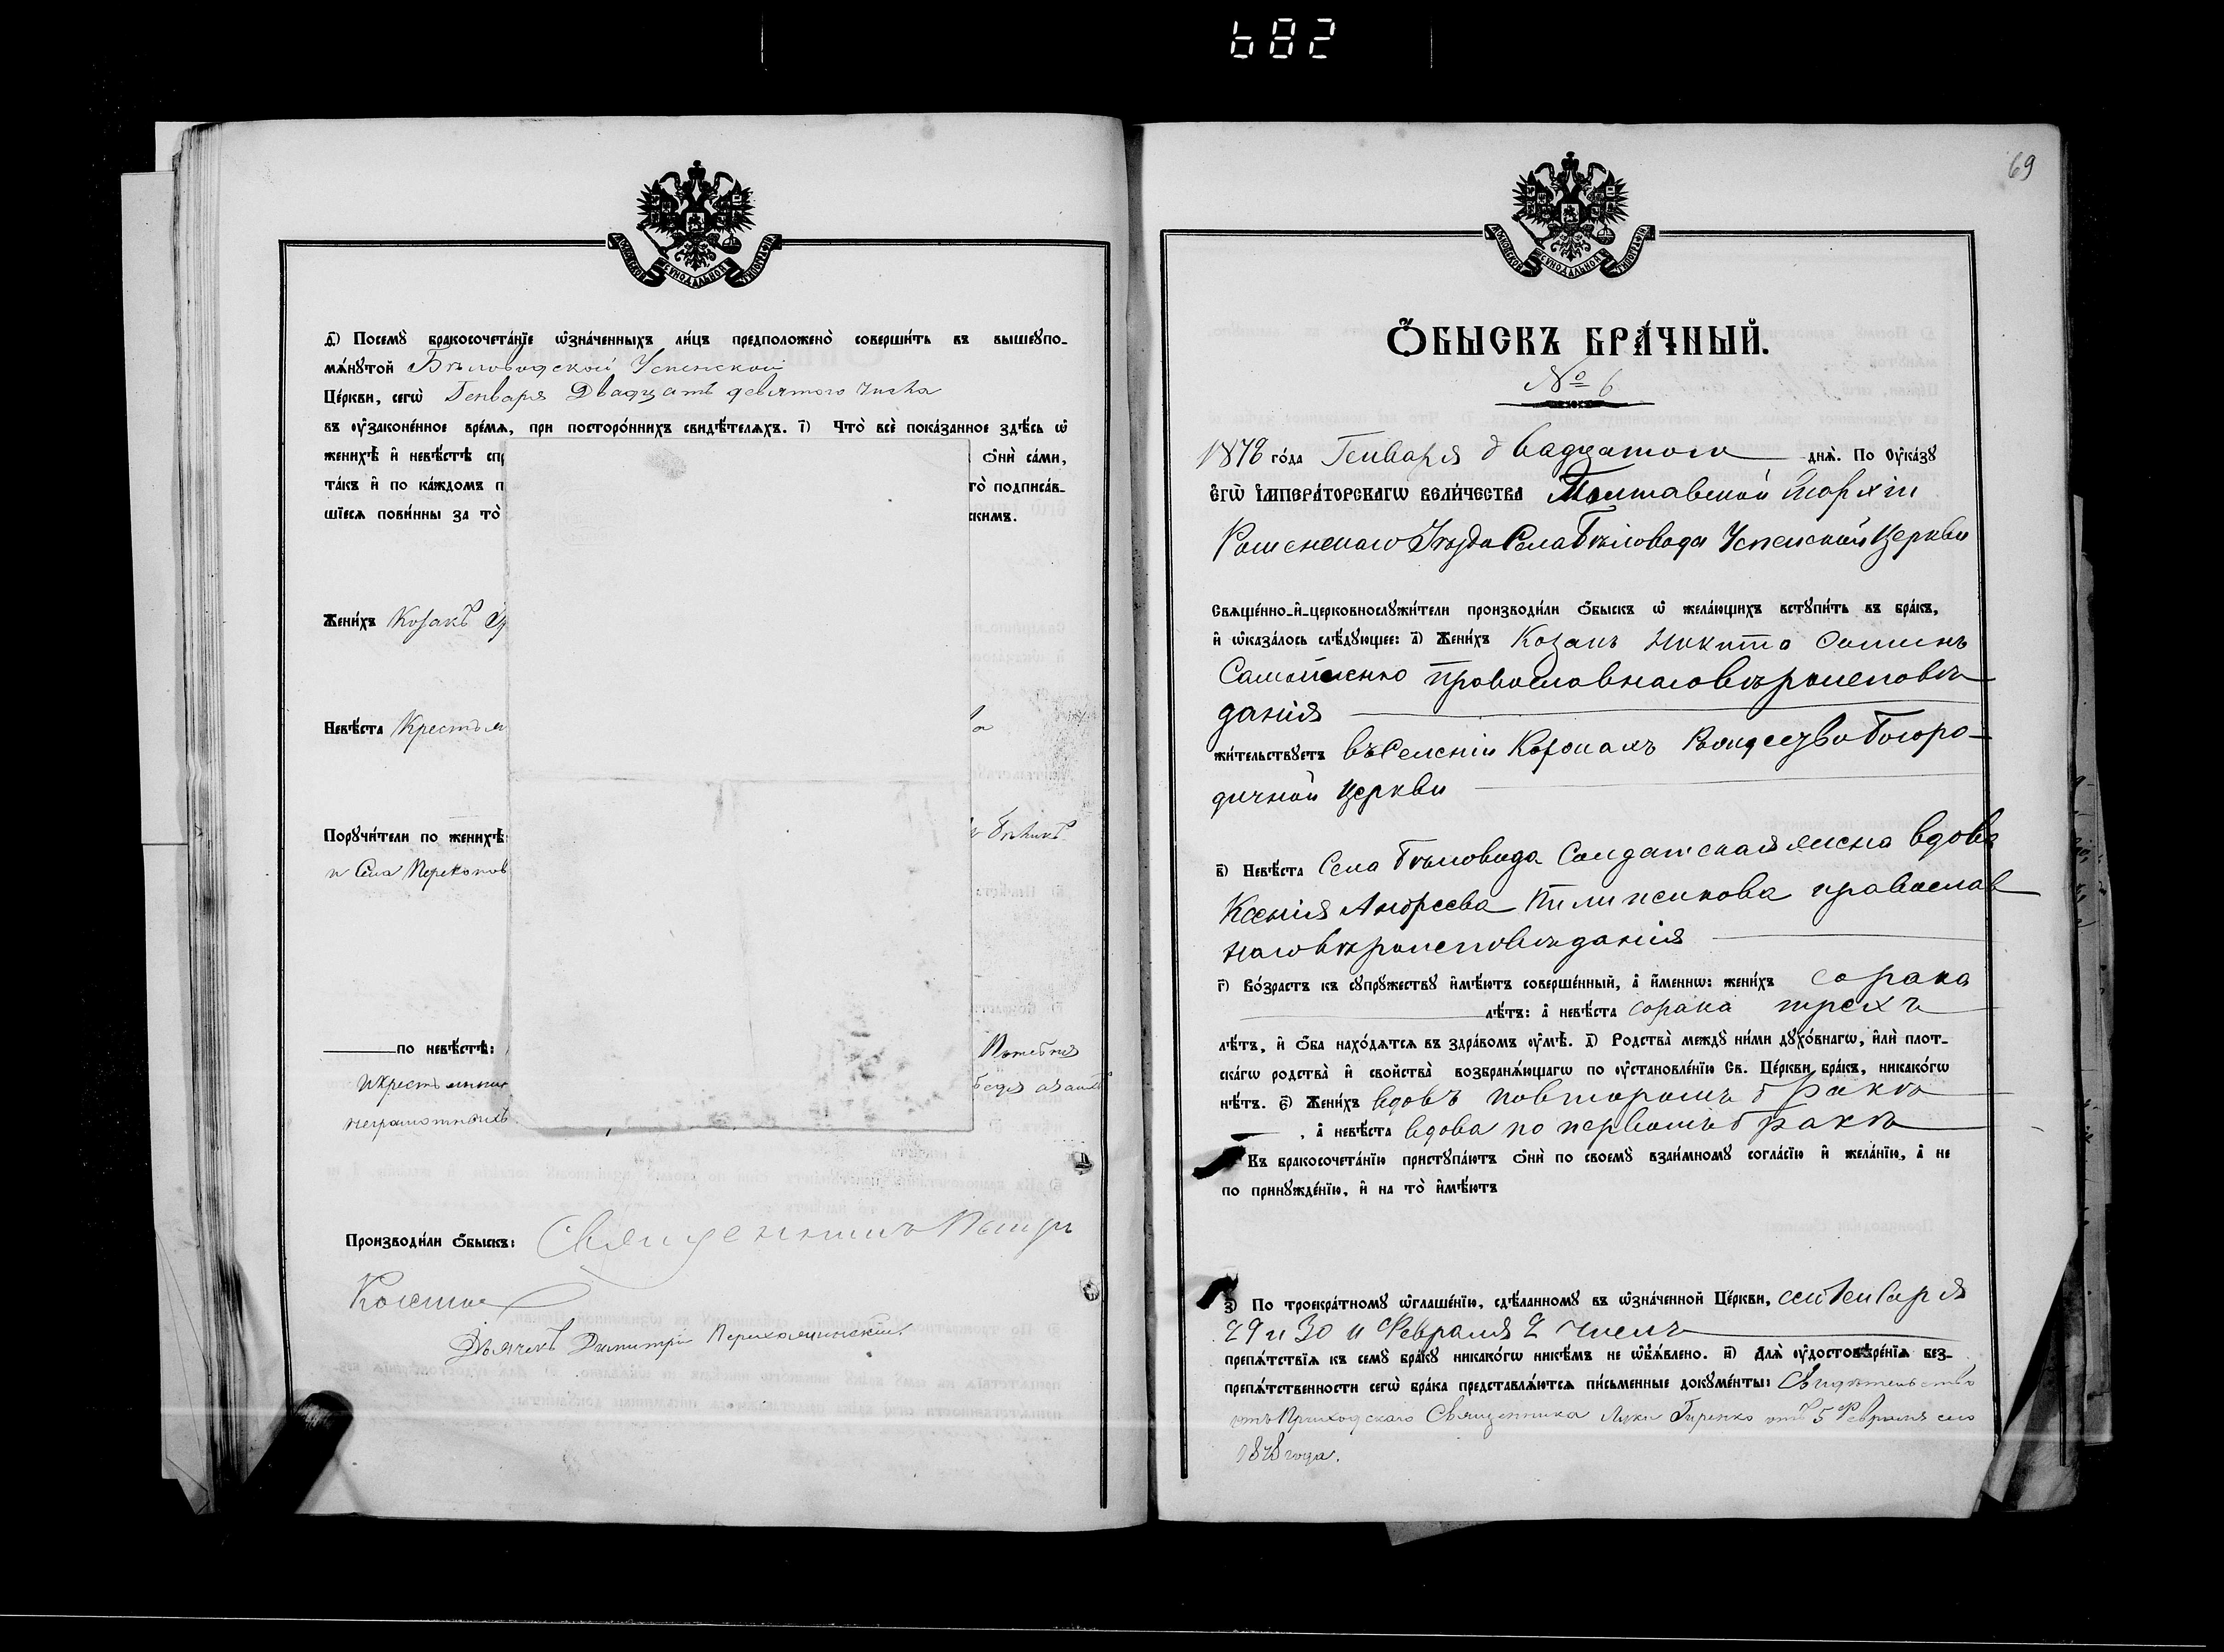 682
МОСКОВСКОЙ СѴНОДАЛЬНОЙ ТИПОГРАФІИ
Д҃) Посемꙋ̀ бракосочета́нїе ѡ҆зна́ченныхъ ли́цъ предположено̀ соверши́ть въ вышеꙋпо-
мѧ́нꙋтой Бѣловодской Успенской
Це́ркви, сегѡ̀ Генваря Двадцать девятого числа
въ ᲂу҆законе́нное вре́мѧ, при посторо́ннихъ свидѣ́телѧхъ. І҃) Что̀ всѐ пока́занное здѣ́сь ѡ҆
женихѣ̀ и҆ невѣ́стѣ спр ѻ҆нѝ са́ми,
та́къ и҆ по ка́ждомъ п то̀ подписа́в-
шїесѧ пови́нны за то̀ скимъ.
Жени́хъ Козакъ
Невѣ́ста Крестья
Порꙋчи́тели по женихѣ̀
и Села Перекопов
по невѣ́стѣ:
неграмотныхъ
Производи́ли ѻ҆́быскъ: Священникъ Петръ
Дьячекъ Димитрій
69
МОСКОВСКОЙ СѴНОДАЛЬНОЙ ТИПОГРАФІИ
Ѻ҆́БЫСКЪ БРА́ЧНЫЙ.
№ 6
1878 го́да Генваря двадцатого днѧ̀. По Оу҆ка́зꙋ
Е҆ГѠ̀ И҆МПЕРА́ТОРСКАГѠ ВЕЛИ́ЧЕСТВА Полтавской Епархіи
Роменскаго Уѣзда Села Бѣловода Успенской Церкви
Свѧще́нно-и҆-церковнослꙋжи́тели производи́ли ѻ҆́быскъ ѡ҆ жела́ющихъ встꙋпи́ть въ бра́къ,
и҆ ѡ҆каза́лось слѣ́дꙋющее: а҃) Жени́хъ Козакъ Никита
православнаго вѣроисповѣ
данія
жи́тельствꙋетъ въ Селеніи Коровахъ Рождество Богоро-
дичной Церкви
в҃) Невѣ́ста Села Бѣловода Солдатская жена вдова
Ксенія Андреева Пилипенкова православ
наго вѣроисповѣданія
г҃) Во́зрастъ къ сꙋпрꙋ́жествꙋ и҆мѣ́ютъ соверше́нный, а҆ и҆́меннѡ: жени́хъ сорока
лѣ́тъ: а҆ невѣ́ста сорока трехъ
лѣ́тъ, и҆ ѻ҆́ба нахо́дѧтсѧ въ здра́вомъ ᲂу҆мѣ̀. д҃) Родства̀ междꙋ̀ ни́ми дꙋхо́внагѡ, и҆лѝ плот-
ска́гѡ родства̀ и҆ сво́йства̀ возбранѧ́ющагѡ по ᲂу҆становле́нїю Св. Це́ркви бра́къ, никако́гѡ
нѣ́тъ. є҃) Жени́хъ вдовъ по второмъ бракѣ
, а҆ невѣ́ста вдова по первомъ бракѣ
Къ бракосочета́нїю пристꙋпа́ютъ ѻ҆нѝ по своемꙋ̀ взаи́мномꙋ согла́сїю и҆ жела́нїю, а҆ не
по принꙋжде́нїю, и҆ на то̀ и҆мѣ́ютъ
з҃) По троекра́тномꙋ ѡ҆глаше́нїю, сдѣ́ланномꙋ въ ѡ҆зна́ченной Це́ркви, сего Генваря
29 и 30 и Февраля 2 числъ
препѧ́тствїѧ къ семꙋ̀ бра́кꙋ никако́гѡ никѣ́мъ не ѡ҆б̾ѧ́влено. и҃) Длѧ̀ ᲂу҆достовѣре́нїѧ без-
препѧ́тственности сегѡ̀ бра́ка представлѧ́ютсѧ пи́сьменные докꙋме́нты: Свидѣтельство
отъ Приходскаго Священника Луки Гиренко отъ 5 Февраля сего
1878 года.